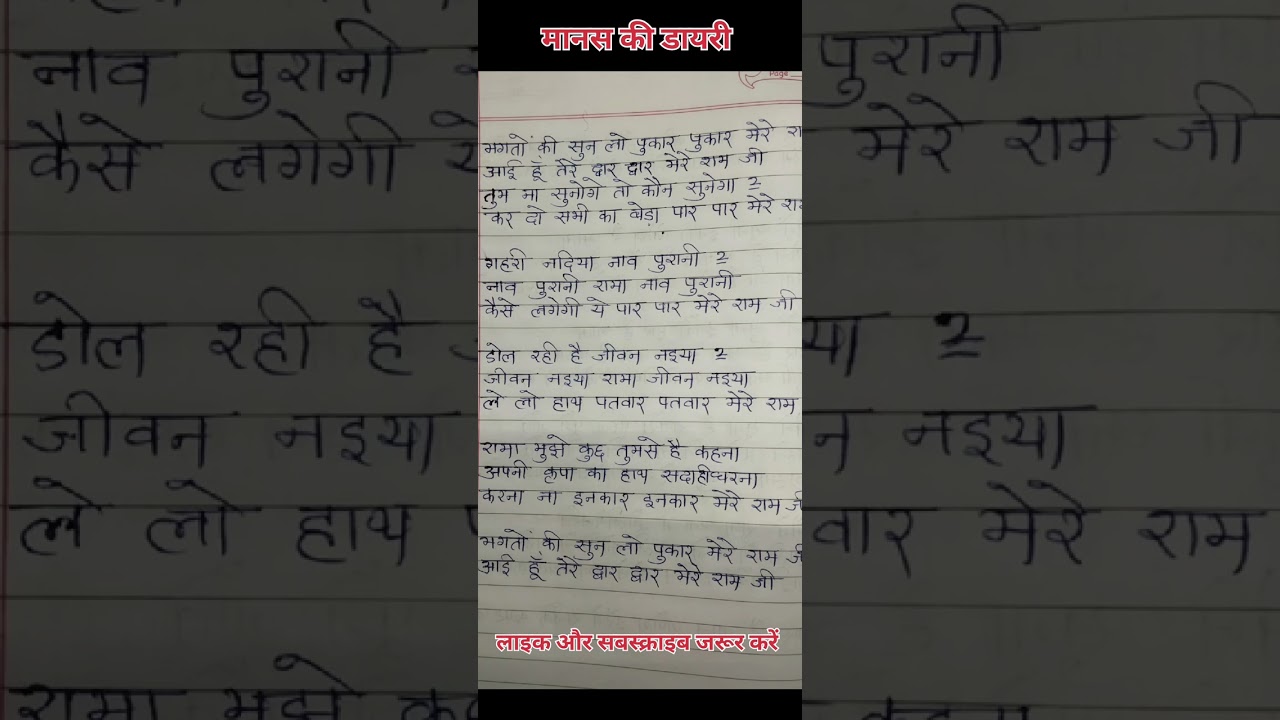 मानस की डायरी
Page
भगतों की सुन लो पुकार पुकार मेरे रा
आई हूँ तेरे द्वार द्वार मेरे राम जी
तुम ना सुनोगे तो कौन सुनेगा २
कर दो सभी का बेड़ा पार पार मेरे राम
गहरी नदिया नाव पुरानी २
नाव पुरानी रामा नाव पुरानी
कैसे लगेगी ये पार पार मेरे राम जी
डोल रही है जीवन नइया २
जीवन नइया रामा जीवन नइया
ले लो हाथ पतवार पतवार मेरे राम
रामा मुझे कुछ तुमसे है कहना
अपनी कृपा का हाथ सदाहीधरना
करना ना इनकार इनकार मेरे राम जी
भगतों की सुन लो पुकार मेरे राम जी
आई हूँ तेरे द्वार द्वार मेरे राम जी
लाइक और सबस्क्राइब जरूर करें
नाव पुरानी
कैसे लगेगी ये
डोल रही है
जीवन नइया
ले लो हाथ
रामा मुझे
पुरानी
मेरे राम जी
या २
न नइया
वार मेरे राम